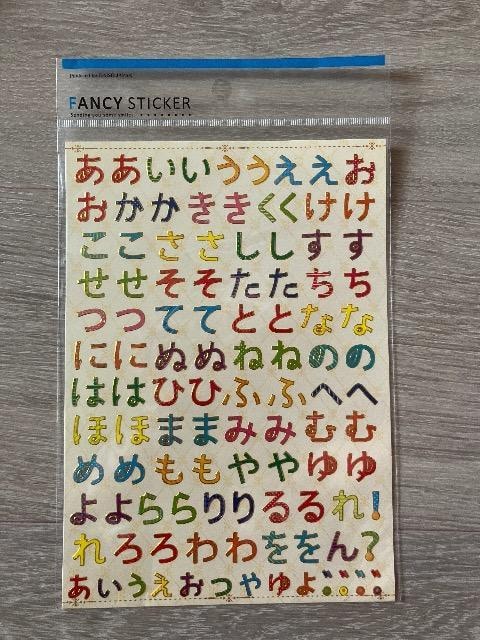 FANCY STICKER
Sending you some smiles
ああいいううええお
おかかききくくけけ
ここささししすす
せせそそたたちち
つつててととなな
ににぬぬねねのの
ははひひふふへへ
ほほままみみむむ
めめももややゆゆ
よよららりりるるれ!
れろろわわををん?
あいうえおつやゆよ゛゜゛゜